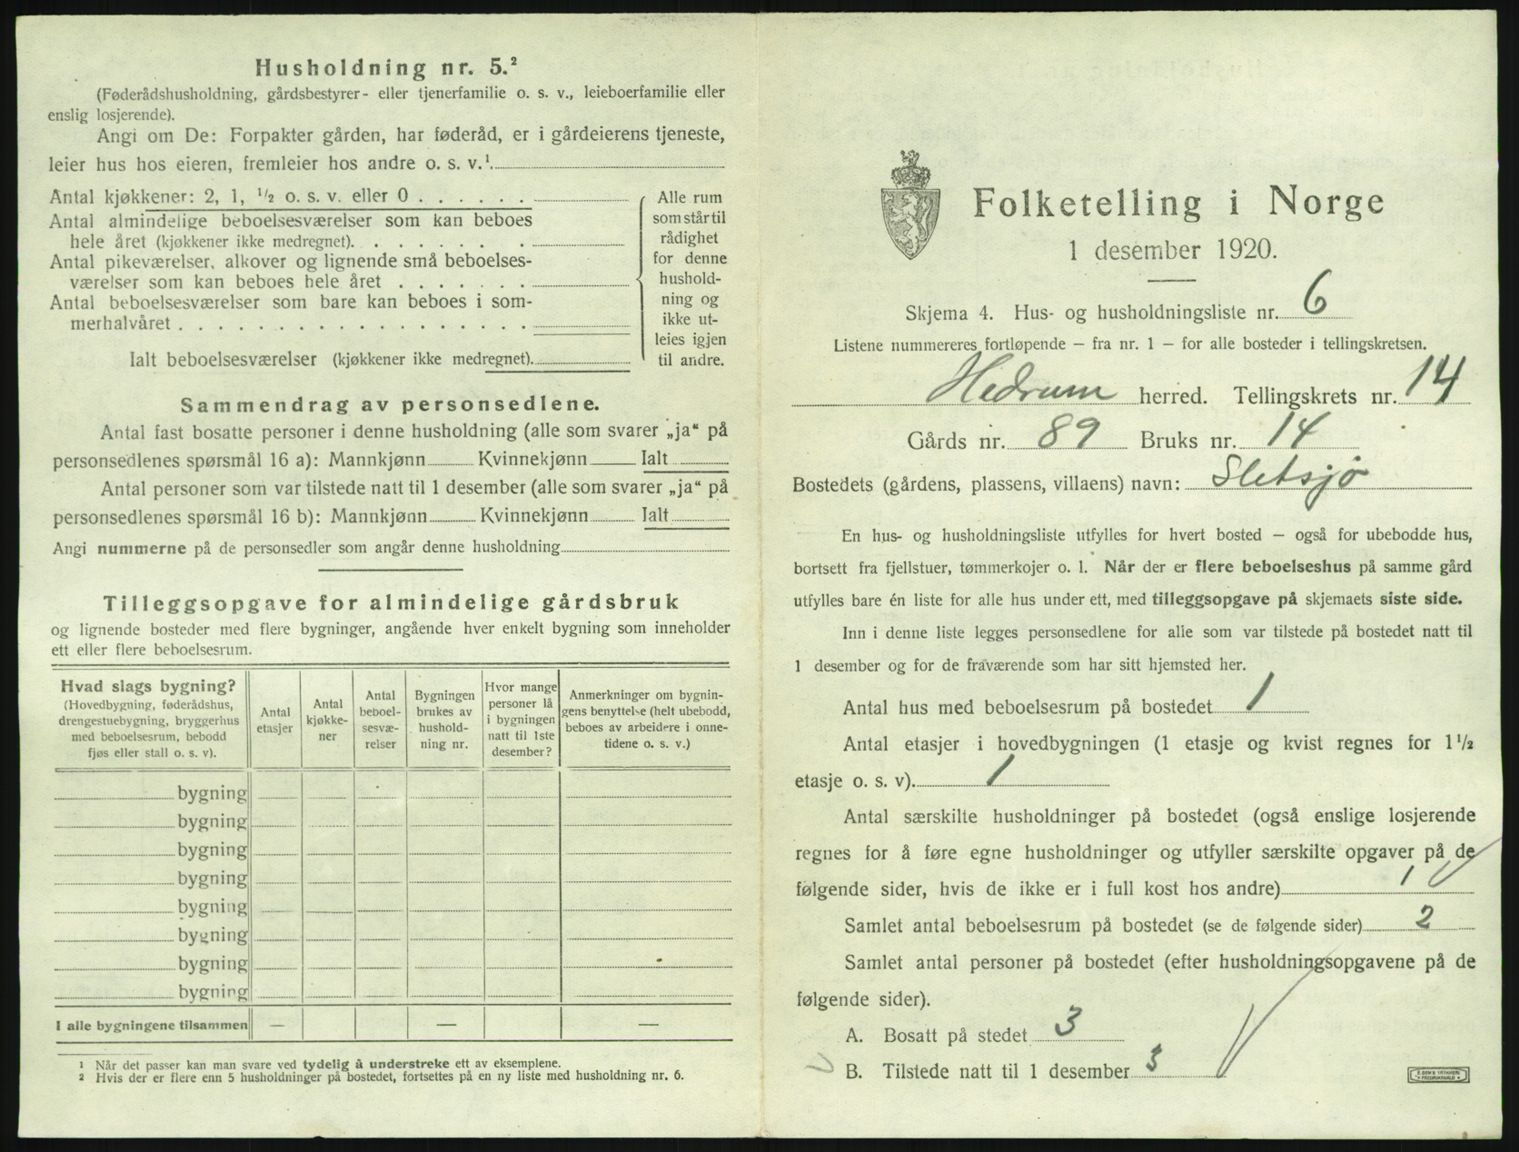 Husholdning nr. 5.²
(Føderådshusholdning, gårdsbestyrer- eller tjenerfamilie o. s. v., leieboerfamilie eller
enslig losjerende).
Angi om De: Forpakter gården, har føderåd, er i gårdeierens tjeneste,
leier hus hos eieren, fremleier hos andre o. s. v.¹
Antal kjøkkener: 2, 1, ¹/₂ o. s. v. eller 0 . . . . . .
Antal almindelige beboelsesværelser som kan beboes
hele året (kjøkkener ikke medregnet). . . . . . . .
Antal pikeværelser, alkover og lignende små beboelses-
værelser som kan beboes hele året . . . . . . .
Antal beboelsesværelser som bare kan beboes i som-
merhalvåret . . . . . . . . . . . . . . . . . .
Ialt beboelsesværelser (kjøkkener ikke medregnet).
Alle rum
som står til
rådighet
for denne
hushold-
ning og
ikke ut-
leies igjen
til andre.
Sammendrag av personsedlene.
Antal fast bosatte personer i denne husholdning (alle som svarer „ja“ på
personsedlenes spørsmål 16 a): Mannkjønn Kvinnekjønn Ialt
Antal personer som var tilstede natt til 1 desember (alle som svarer „ja“ på
personsedlenes spørsmål 16 b): Mannkjønn Kvinnekjønn Ialt
Angi nummerne på de personsedler som angår denne husholdning
Tilleggsopgave for almindelige gårdsbruk
og lignende bosteder med flere bygninger, angående hver enkelt bygning som inneholder
ett eller flere beboelsesrum.
Hvad slags bygning?
(Hovedbygning, føderådshus,
drengestuebygning, bryggerhus
med beboelsesrum, bebodd
fjøs eller stall o. s. v).
Antal
etasjer
Antal
kjøkke-
ner
Antal
beboel-
sesvæ-
relser
Bygningen
brukes av
hushold-
ning nr.
Hvor mange
personer lå
i bygningen
natt til 1ste
desember?
Anmerkninger om bygnin-
gens benyttelse (helt ubebodd,
beboes av arbeidere i onne-
tidene o. s. v.)
bygning
bygning
bygning
bygning
bygning
bygning
bygning
bygning
I alle bygningene tilsammen — — —
¹ Når det passer kan man svare ved tydelig å understreke ett av eksemplene.
² Hvis der er flere enn 5 husholdninger på bostedet, fortsettes på en ny liste med husholdning nr. 6.
Folketelling i Norge
1 desember 1920.
Skjema 4. Hus- og husholdningsliste nr. 6
Listene nummereres fortløpende — fra nr. 1 — for alle bosteder i tellingskretsen.
Hedrum herred. Tellingskrets nr. 14
Gårds nr. 89 Bruks nr. 14
Bostedets (gårdens, plassens, villaens) navn: Sletsjø
En hus- og husholdningsliste utfylles for hvert bosted — også for ubebodde hus,
bortsett fra fjellstuer, tømmerkojer o. l. Når der er flere beboelseshus på samme gård
utfylles bare én liste for alle hus under ett, med tilleggsopgave på skjemaets siste side.
Inn i denne liste legges personsedlene for alle som var tilstede på bostedet natt til
1 desember og for de fraværende som har sitt hjemsted her.
Antal hus med beboelsesrum på bostedet 1
Antal etasjer i hovedbygningen (1 etasje og kvist regnes for 1¹/₂
etasje o. s. v). 1
Antal særskilte husholdninger på bostedet (også enslige losjerende
regnes for å føre egne husholdninger og utfyller særskilte opgaver på de
følgende sider, hvis de ikke er i full kost hos andre) 1
Samlet antal beboelsesrum på bostedet (se de følgende sider) 2
Samlet antal personer på bostedet (efter husholdningsopgavene på de
følgende sider).
A. Bosatt på stedet 3
B. Tilstede natt til 1 desember 3